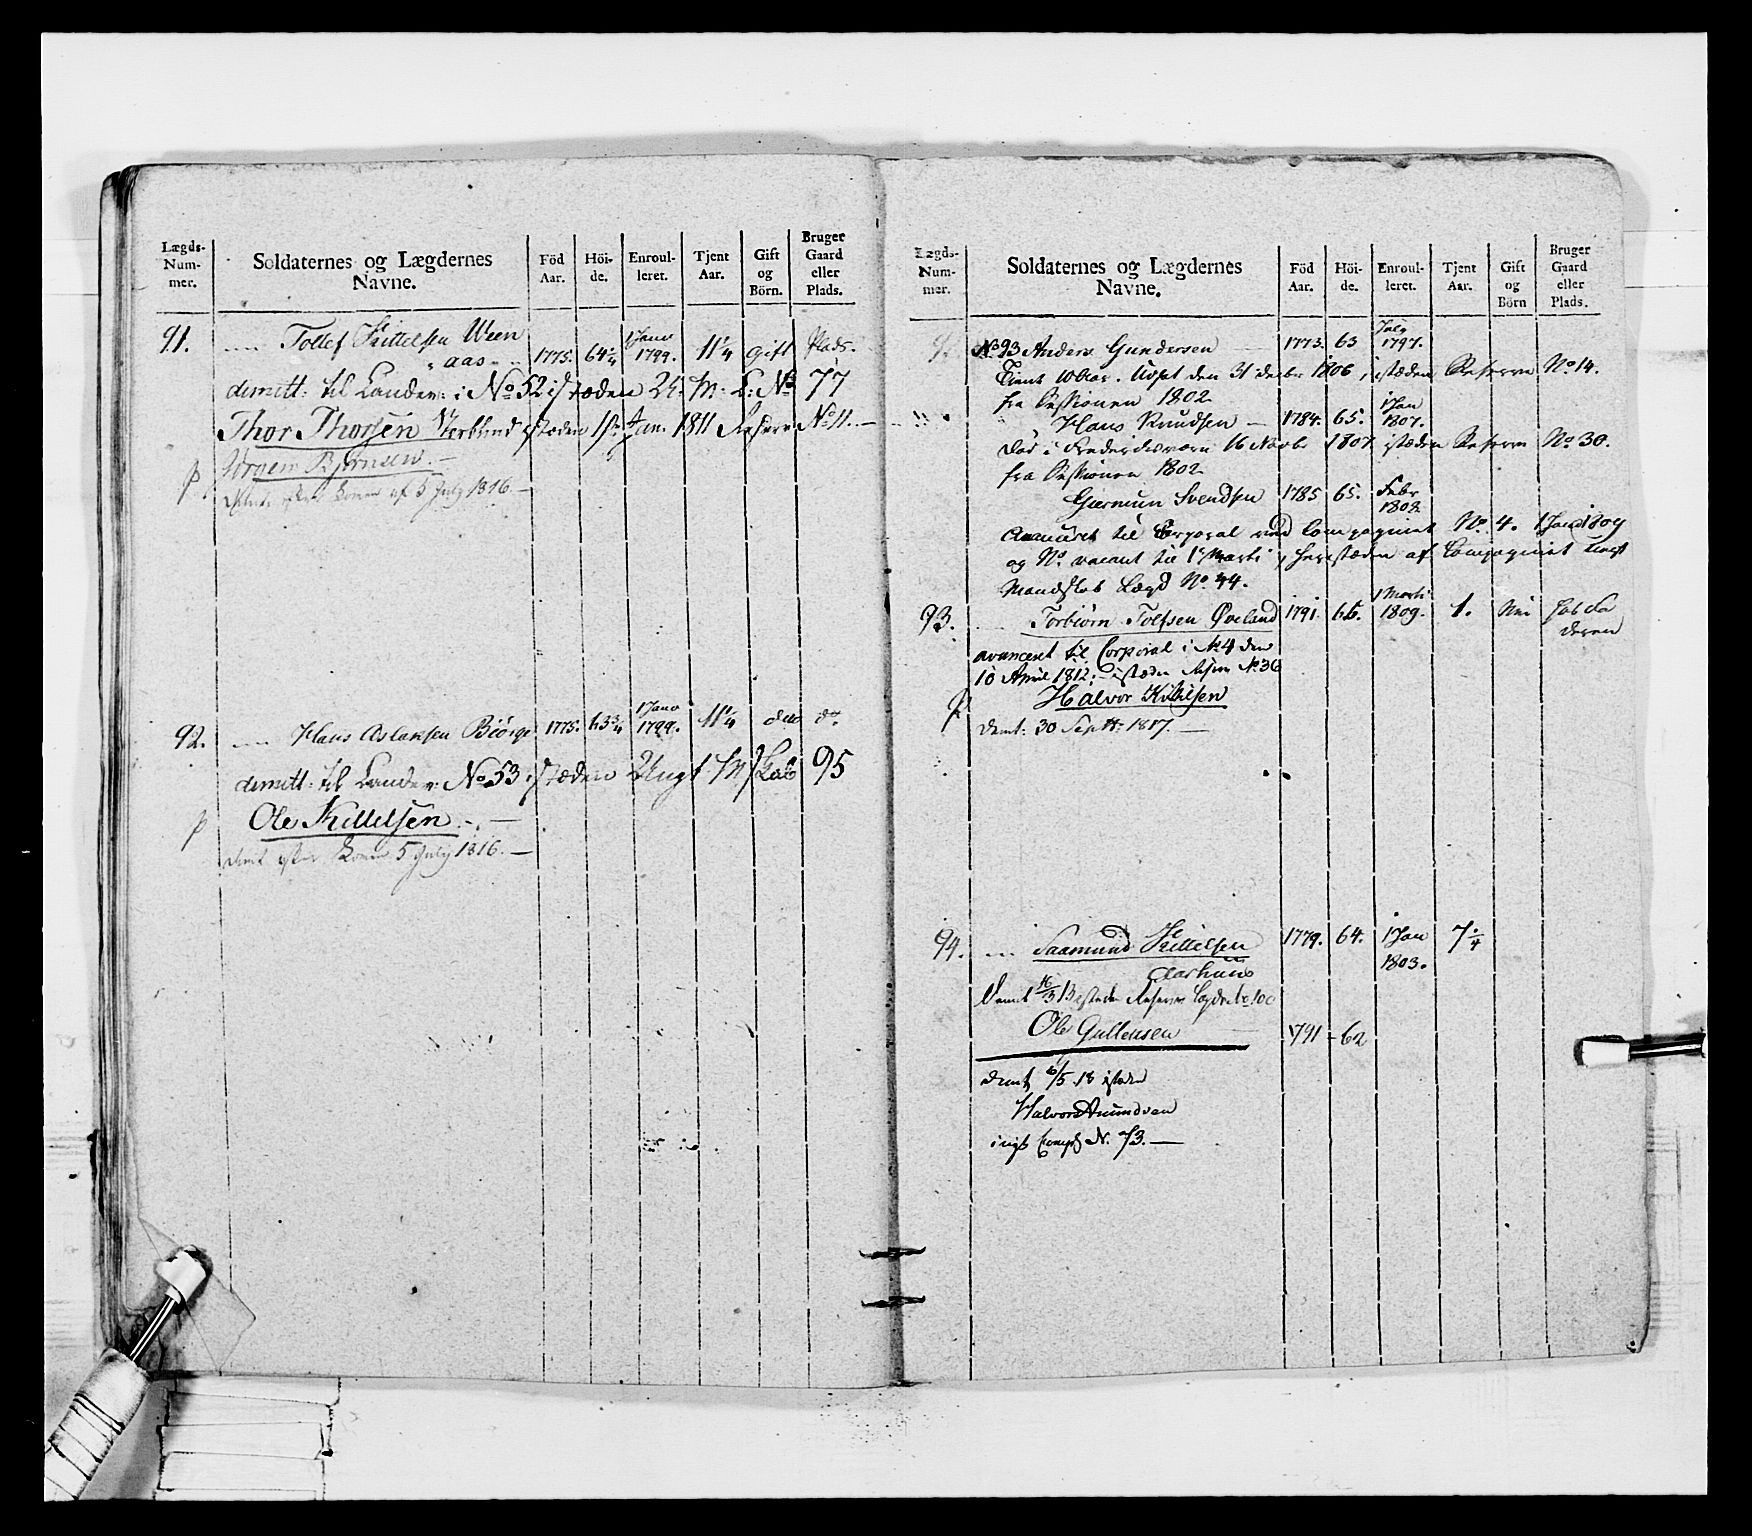 Lægds-
Num-
mer.
Soldaternes og Lægdernes
Navne.
Föd
Aar.
Höi-
de.
Enroul-
leret.
Tjent
Aar.
Gift
og
Börn.
Bruger
Gaard
eller
Plads.
91. Tollef Kittelsen Ween 1775. 64 1/4 1 Janv 1799. 11 1/4 gift Plads.
aas
demitt: til Landev: i No 52 istæden U: M: L: No 77
Thor Thorsen istæden 1ste Jan. 1811 Reserv No 11.
Jörgen Björnsen
Demt. efter Komm af 5 July 1816
92. Hans Aslaksen Biörge 1775. 63 3/4 1 Janv 1799. 11 1/4 dito do
demitt: til Landev: No 53 istæden Ungt M 95
Ole Kittelsen
Demt efter Komm 5 July 1816.
Lægds-
Num-
mer.
Soldaternes og Lægdernes
Navne.
Föd
Aar.
Höi-
de.
Enroul-
leret.
Tjent
Aar.
Gift
og
Börn
Bruger
Gaard
eller
Plads.
No 93 Anders Gundersen 1773. 63 July 1797.
Tient 10 Aar. den 31 decbr 1806, istæden Reserve No 14.
fra Sessionen 1802
Hans Knudsen 1784. 65. 1 Jan 1807.
Död i Fredriksværn 16 Novbr 1807 istæden Reserve No 30.
fra Sessionen 1802
Giermun Svendsen 1785 65. Febr 1808
Avanceret til Corporal ved Compagniet No 4. 1 Janv 1809
og No vacant til 1 Marti, her istæden af Compagniet ungt
Mandskab Lægd No 44.
93. Torbiörn Tolfsen Qveland 1791. 66. 1 Marti 1809. 1. Nei hos Fa
deren
avanceret til Corporal i No 4 den
10 April 1812; istæden Reserv No 36
Halvor Kittilsen
Demt: 30 Septbr: 1817.
94. Saamund Kittelsen 1779. 64. 1 Jan 1803. 7 1/4
Aarhuus
Demt 16/3 13 istæden Reserve Lægds No 100
Ole Gullensen 1791 - 62
demt 6/5 18 istæden
Halvor Amundsen
ungt Comp: N. 73.